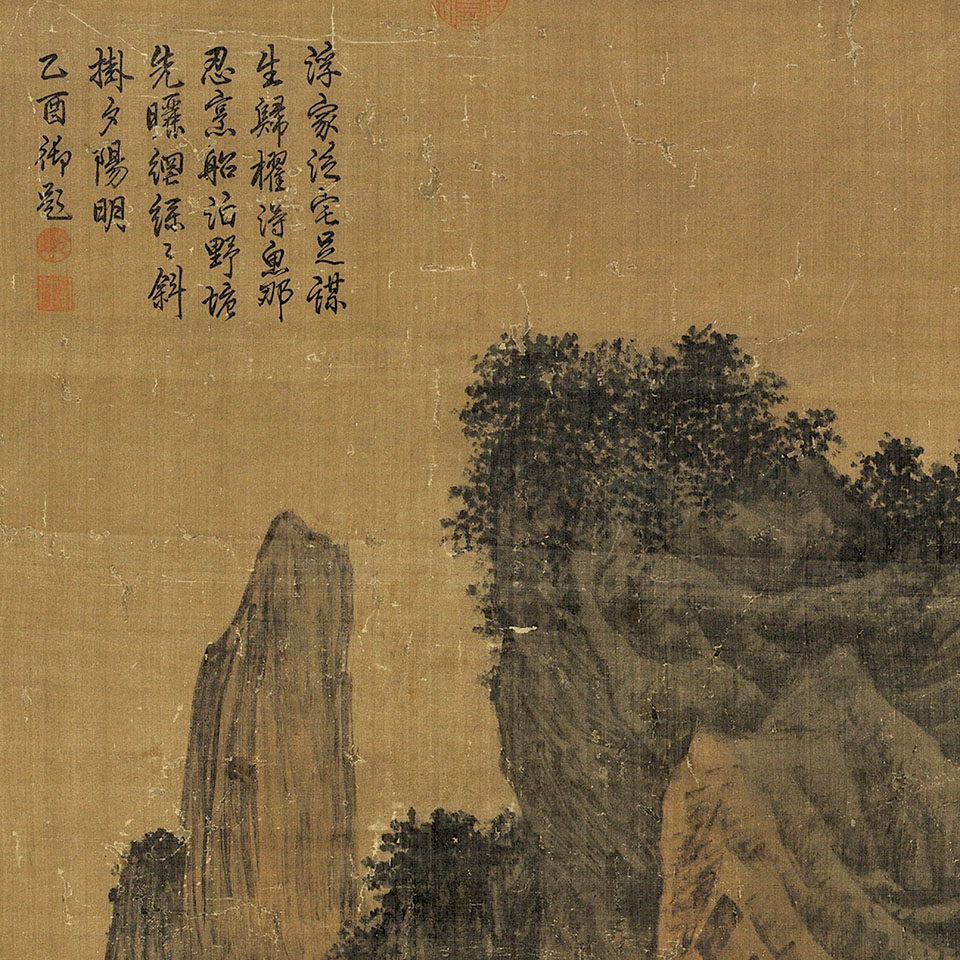 浮家泛宅足謀
生歸櫂得魚那
忍烹船泊野塘
先曬網絲〻斜
掛夕陽明
乙酉御題